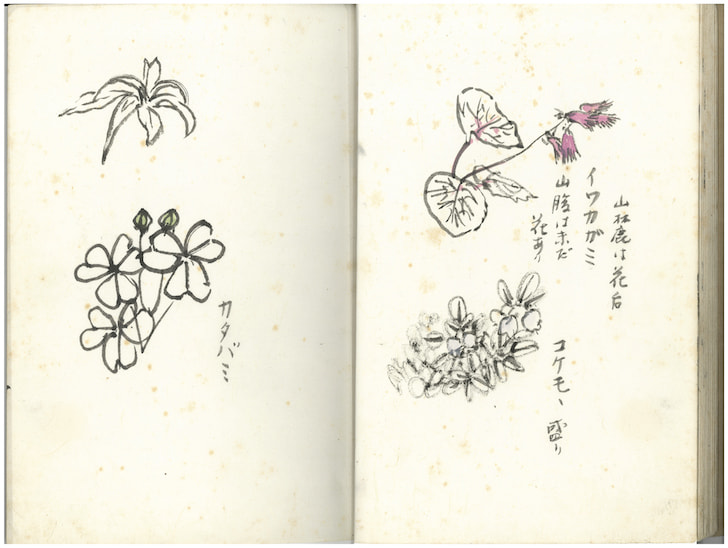 山麓は花后
イワカガミ
山腹は未だ
花あり
コケモヽ 盛り
カタバミ